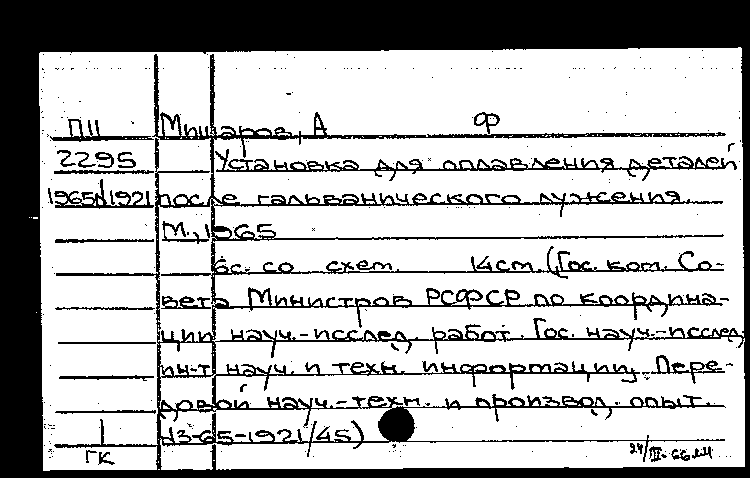 ПII Мишаров, А Ф
2295 Установка для оплавления деталей
1965/1921 после гальванического лужения.
М., 1965
6с. со схем. 14 см. (Гос. ком. Со-
вета Министров РСФСР по координа-
ции науч.-исслед. работ. Гос. науч.-исслед.
ин-т науч. и техн. информации. Пере-
довой науч.-техн. и производ. опыт.
N3-65-1921/45)
ГК
24/III-66